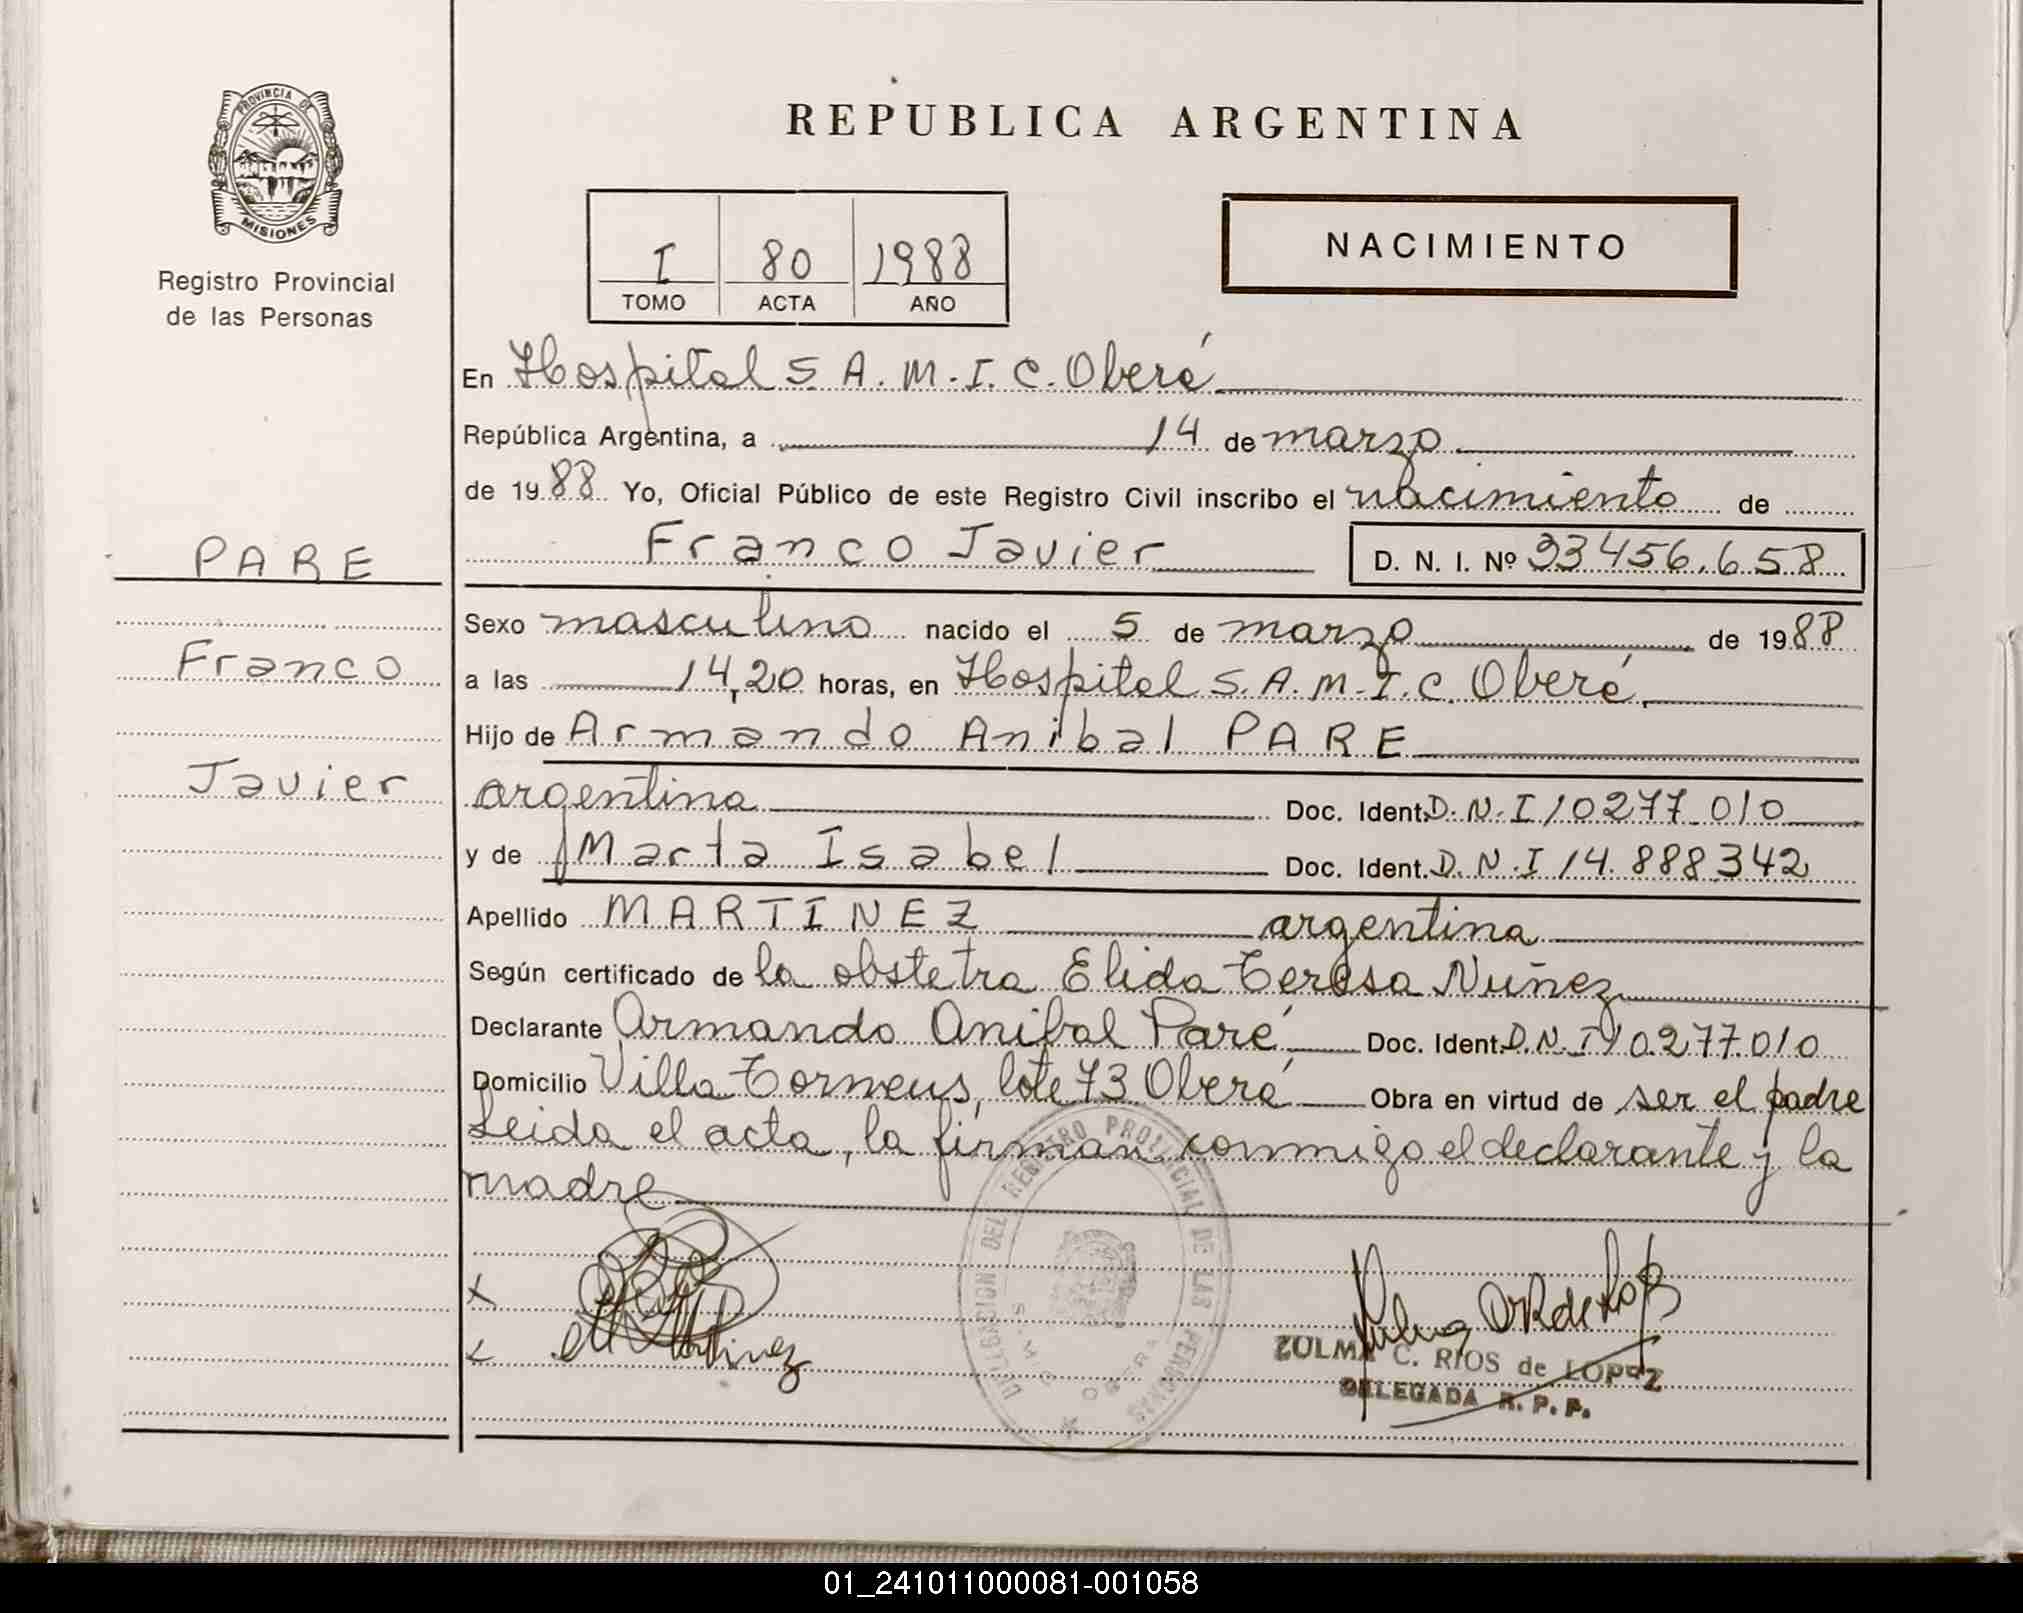 PROVINCIA DE
MISIONES
Registro Provincial
de las Personas
REPUBLICA ARGENTINA
I 80 1988
TOMO ACTA AÑO
NACIMIENTO
En Hospital S.A.M.I.C. Oberá
República Argentina, a 14 de marzo
de 1988 Yo, Oficial Público de este Registro Civil inscribo el nacimiento de
Franco Javier D. N. I. Nº 33456.658
PARE
Sexo masculino nacido el 5 de marzo de 1988
Franco
a las 14,20 horas, en Hospital S.A.M.I.C. Oberá,
Hijo de Armando Anibal PARE
Javier
argentina Doc. Ident. D.N.I 10277.010
y de Marta Isabel Doc. Ident. D.N.I 14.888.342
Apellido MARTINEZ argentina
Según certificado de la obstetra Elida Teresa Nuñez
Declarante Armando Anibal Paré Doc. Ident. D.N.I 10.277.010
Domicilio Villa Torneus, lote 73 Oberá Obra en virtud de ser el padre
Leida el acta, la firman conmigo el declarante y la
madre
DELEGACION DEL REGISTRO PROVINCIAL DE LAS PERSONAS
OBERA
ZULMA C. RIOS de LOPEZ
DELEGADA R. P. P.
01_241011000081-001058